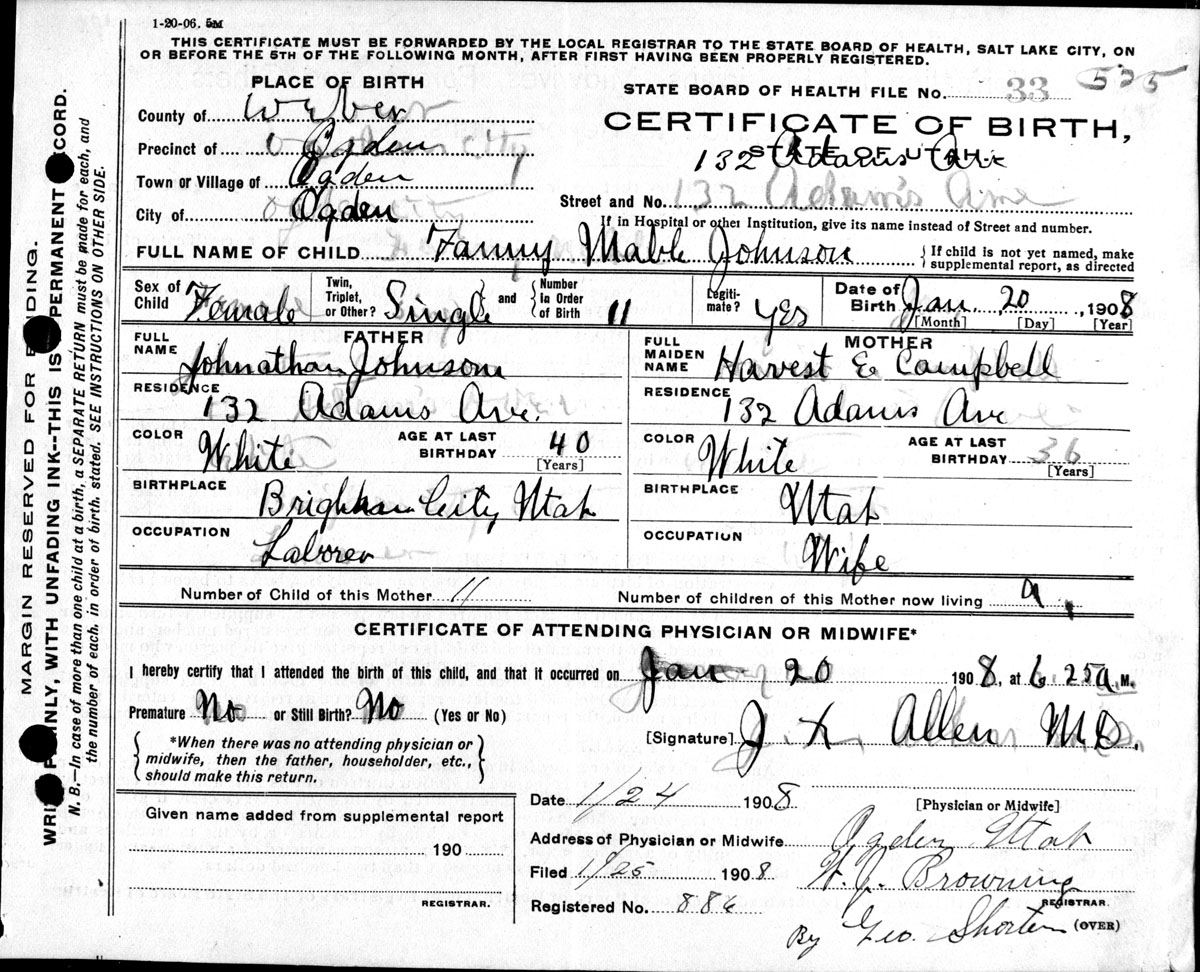 1-20-06. 5M
THIS CERTIFICATE MUST BE FORWARDED BY THE LOCAL REGISTRAR TO THE STATE BOARD OF HEALTH, SALT LAKE CITY, ON
OR BEFORE THE 5TH OF THE FOLLOWING MONTH, AFTER FIRST HAVING BEEN PROPERLY REGISTERED.
PLACE OF BIRTH
STATE BOARD OF HEALTH FILE No. 33 535
County of Weber
CERTIFICATE OF BIRTH,
STATE OF UTAH.
Precinct of Ogden
132 Adams Ave
Town or Village of Ogden
Street and No. 132 Adam's Ave
City of Ogden
If in Hospital or other Institution, give its name instead of Street and number.
FULL NAME OF CHILD Fanny Mable Johnson { If child is not yet named, make
supplemental report, as directed
Sex of Child Female
Twin, Triplet, or Other? Single and Number In Order of Birth 11
Legiti-mate? yes
Date of Birth Jan. 20, 1908
[Month] [Day] [Year]
FATHER
FULL NAME Johnathan Johnson
RESIDENCE 132 Adams Ave.
COLOR White AGE AT LAST BIRTHDAY 40
[Years]
BIRTHPLACE Brigham City Utah
OCCUPATION Laborer
MOTHER
FULL MAIDEN NAME Harvest E Campbell
RESIDENCE 132 Adams Ave
COLOR White AGE AT LAST BIRTHDAY 36
[Years]
BIRTHPLACE Utah
OCCUPATION Wife
Number of Child of this Mother 11 Number of children of this Mother now living 9
CERTIFICATE OF ATTENDING PHYSICIAN OR MIDWIFE*
I hereby certify that I attended the birth of this child, and that it occurred on Jan 20 1908, at 6.25 a M.
Premature No or Still Birth? No (Yes or No)
{ *When there was no attending physician or
midwife, then the father, householder, etc.,
should make this return. }
[Signature] J. X. Allen M.D.
Date 1/24 1908 [Physician or Midwife]
Given name added from supplemental report
190
REGISTRAR.
Address of Physician or Midwife Ogden Utah
Filed 1/25 1908 W. J. Browning
REGISTRAR.
Registered No. 886
By Geo. Shorten (OVER)
MARGIN RESERVED FOR BINDING.
WRITE PLAINLY, WITH UNFADING INK--THIS IS PERMANENT RECORD.
N. B.—In case of more than one child at a birth, a SEPARATE RETURN must be made for each, and
the number of each, in order of birth, stated. SEE INSTRUCTIONS ON OTHER SIDE.